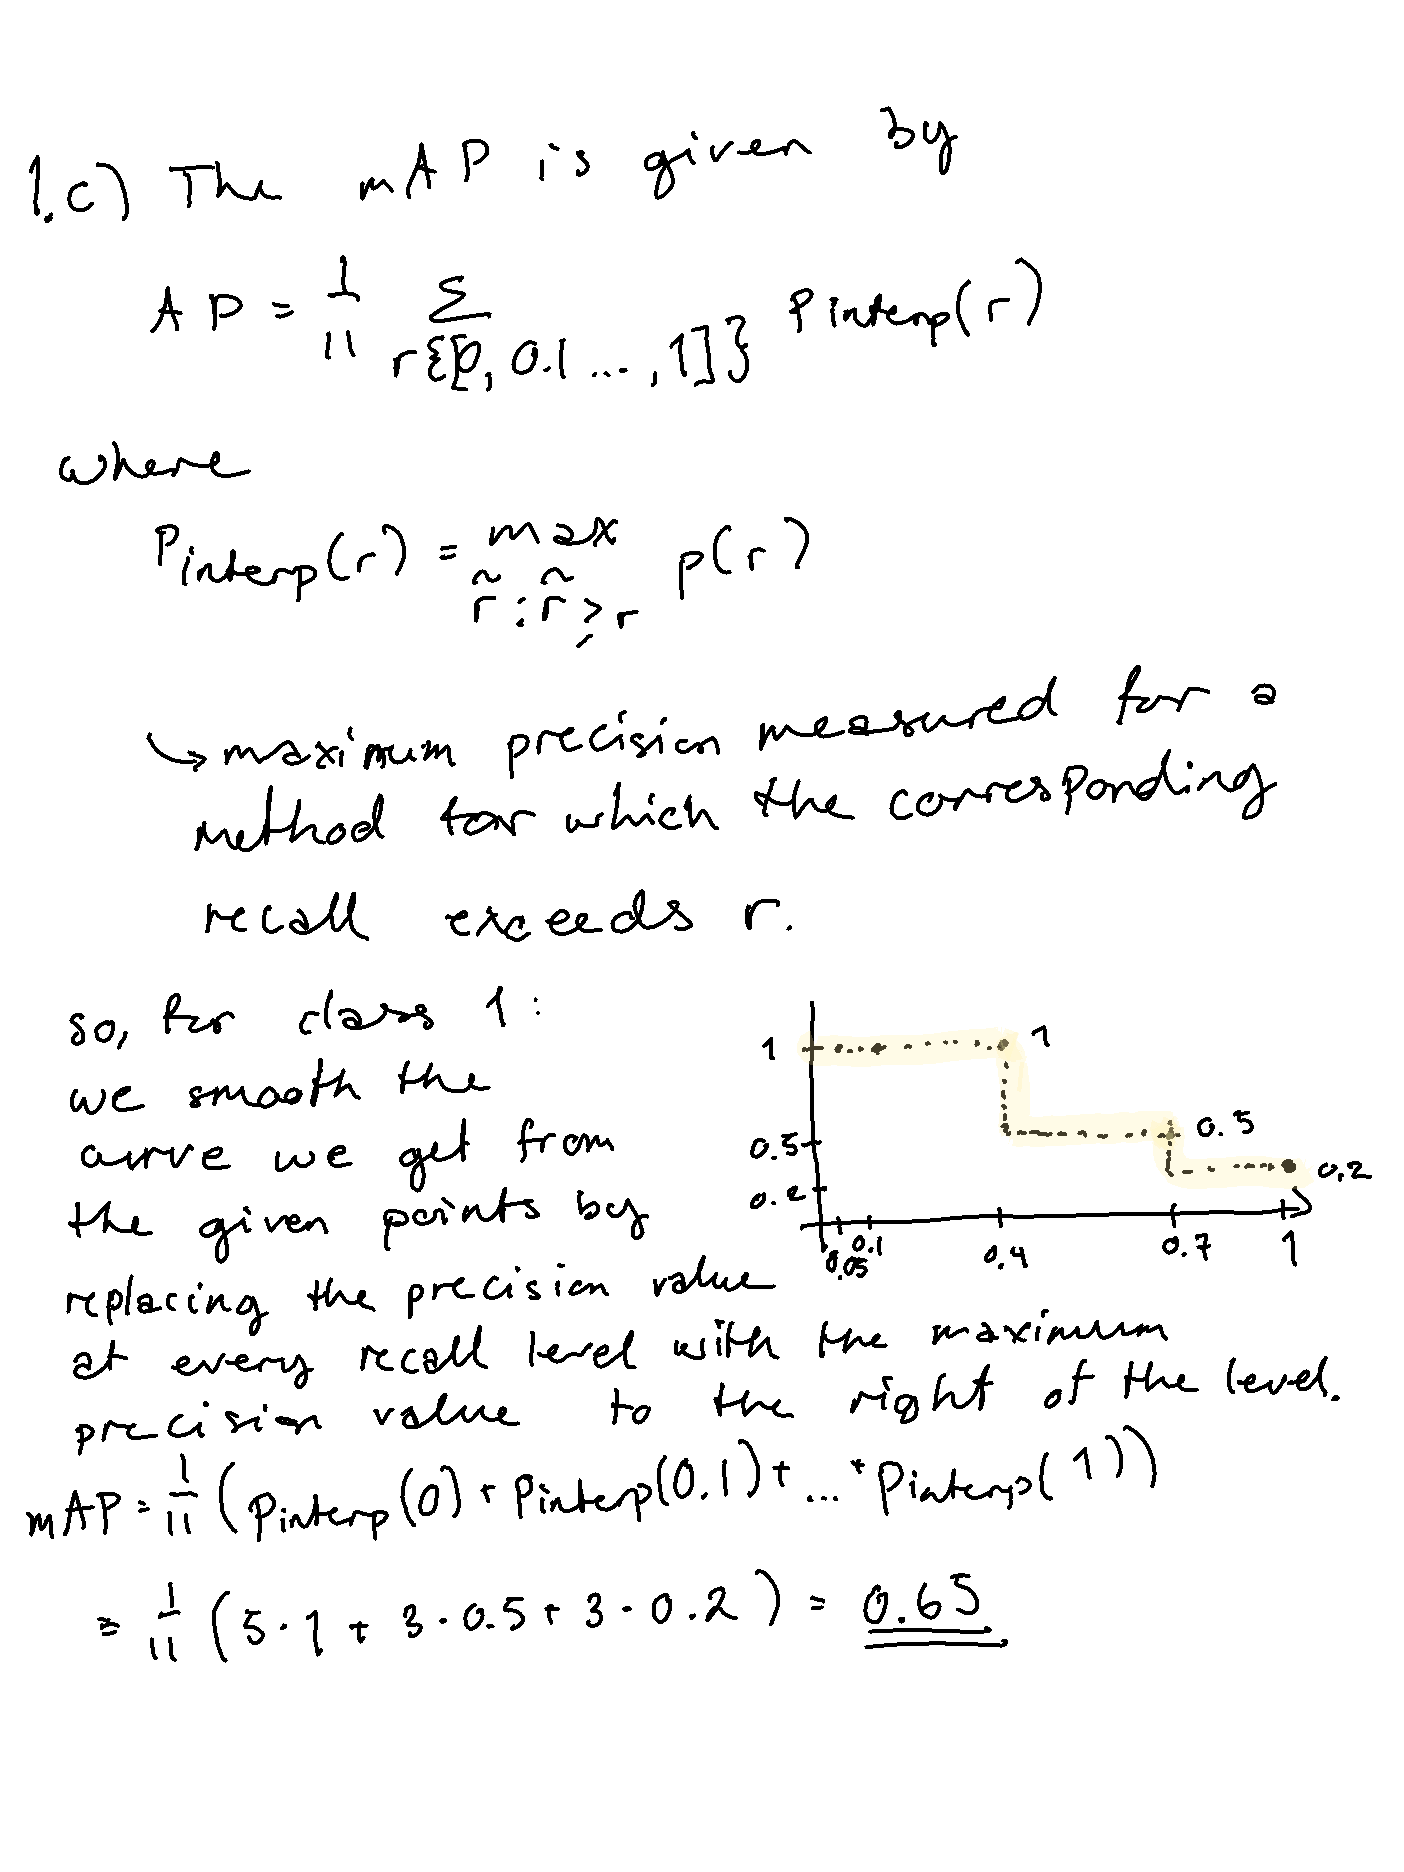 1.c) The mAP is given by
AP = 1/11 Σ r{[0, 0.1 ..., 1]} Pinterp(r)
where
Pinterp(r) = max r̃ : r̃ ≥ r p(r)
↳ maximum precision measured for a
method for which the corresponding
recall exceeds r.
so, for class 1 :
we smooth the
curve we get from
the given points by
replacing the precision value
at every recall level with the maximum
precision value to the right of the level.
1 1
0.5 0.5
0.2 0,2
0.05 0.1 0.4 0.7 1
mAP = 1/11 (Pinterp(0) + Pinterp(0.1) + ... + Pinterp(1))
= 1/11 (5·1 + 3·0.5 + 3·0.2) = 0.65